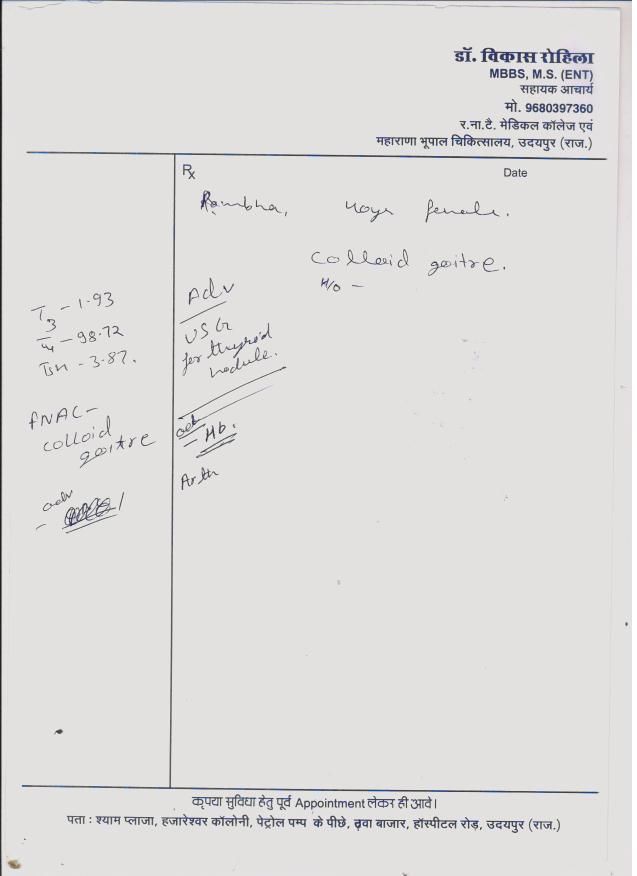 डॉ. विकास रोहिला
MBBS, M.S. (ENT)
सहायक आचार्य
मो. 9680397360
र.ना.टै. मेडिकल कॉलेज एवं
महाराणा भूपाल चिकित्सालय, उदयपुर (राज.)
Rx
Date
Rambha, 40yr female.
Colloid goitre.
H/O -
T3 - 1.93
T4 - 98.72
TSH - 3.87.
FNAC -
colloid
goitre
adv
-
Adv
USG
for thyroid
nodule.
adv
- Hb.
कृपया सुविधा हेतु पूर्व Appointment लेकर ही आवे।
पता : श्याम प्लाजा, हजारेश्वर कॉलोनी, पेट्रोल पम्प के पीछे, दवा बाजार, हॉस्पीटल रोड़, उदयपुर (राज.)